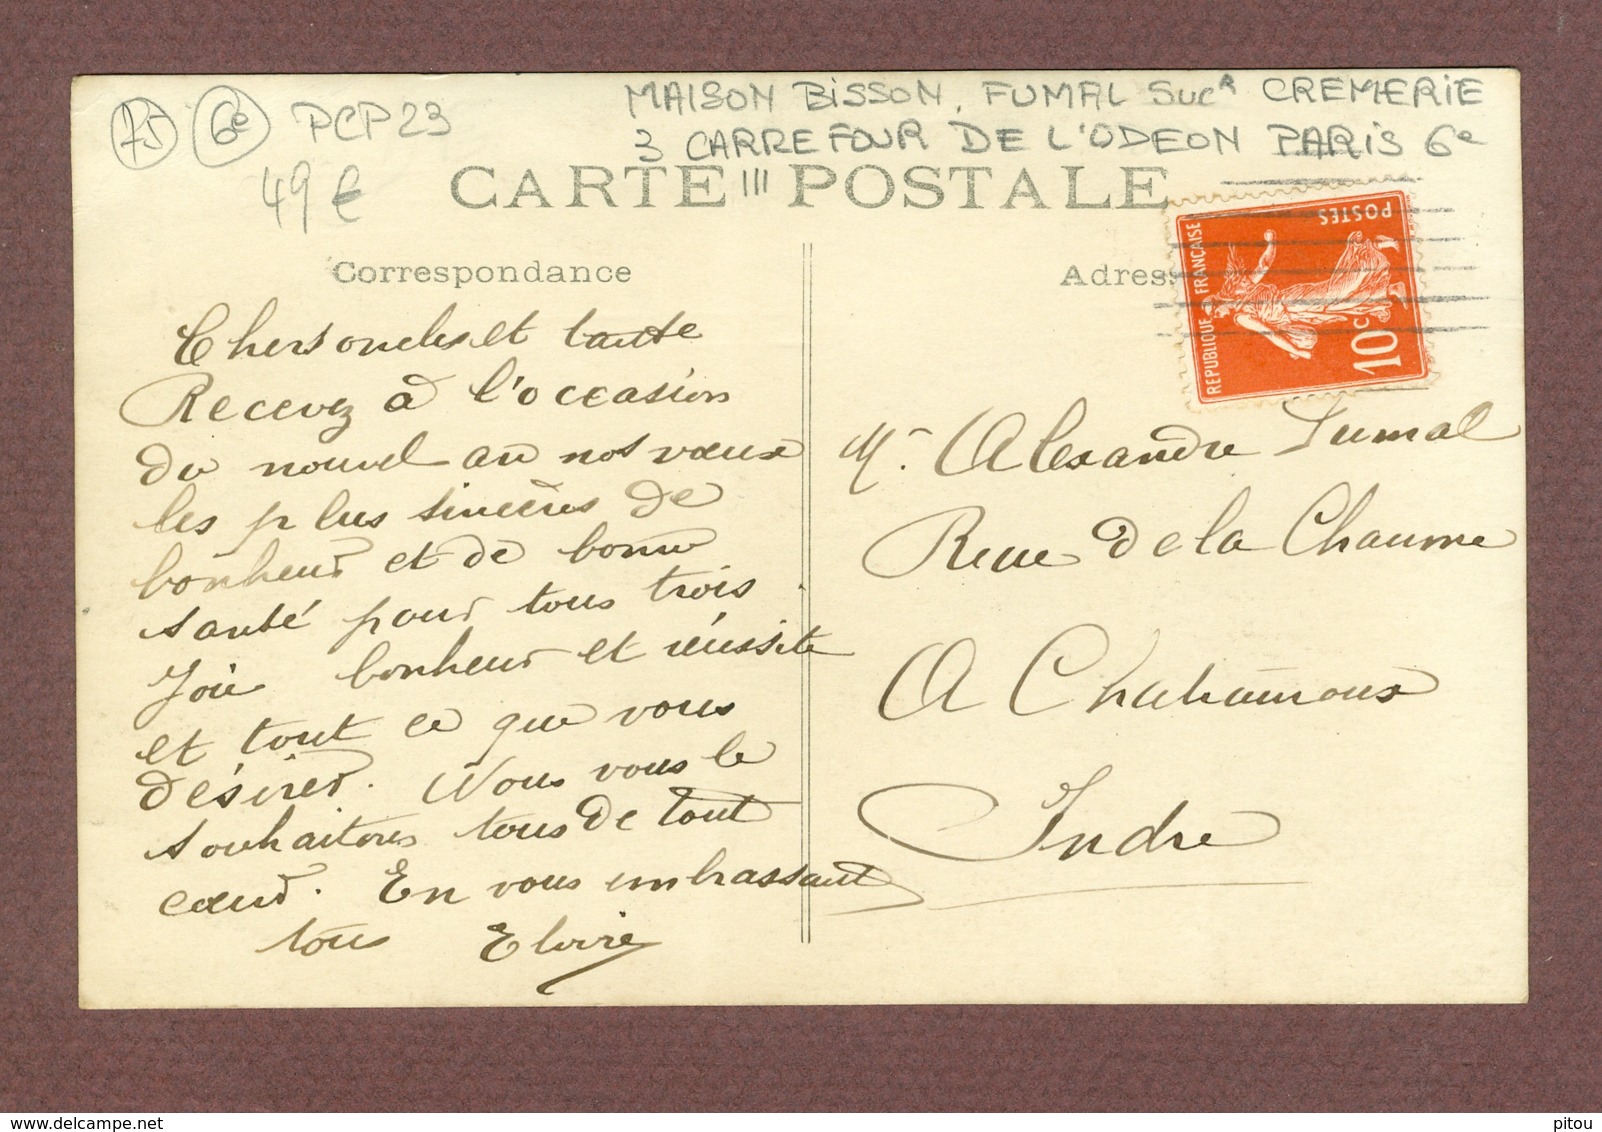 75 6e PCP 23
49 €
MAISON BISSON, FUMAL SUCR CREMERIE
3 CARREFOUR DE L'ODEON PARIS 6e
CARTE POSTALE
Correspondance
Adress
REPUBLIQUE FRANÇAISE
POSTES
10c
Chers oncles et tante
Recevez à l'occeasion
du nouvel an nos vœux
les plus sincères de
bonheur et de bonne
santé pour tous trois.
Joie bonheur et réussite
et tout ce que vous
désirer. Nous vous le
souhaitons tous de tout
cœur. En vous embrassant
tous Eloire
Mr. Alexandre Fumal
Rue de la Chaume
A Chateauroux
Indre
pitou